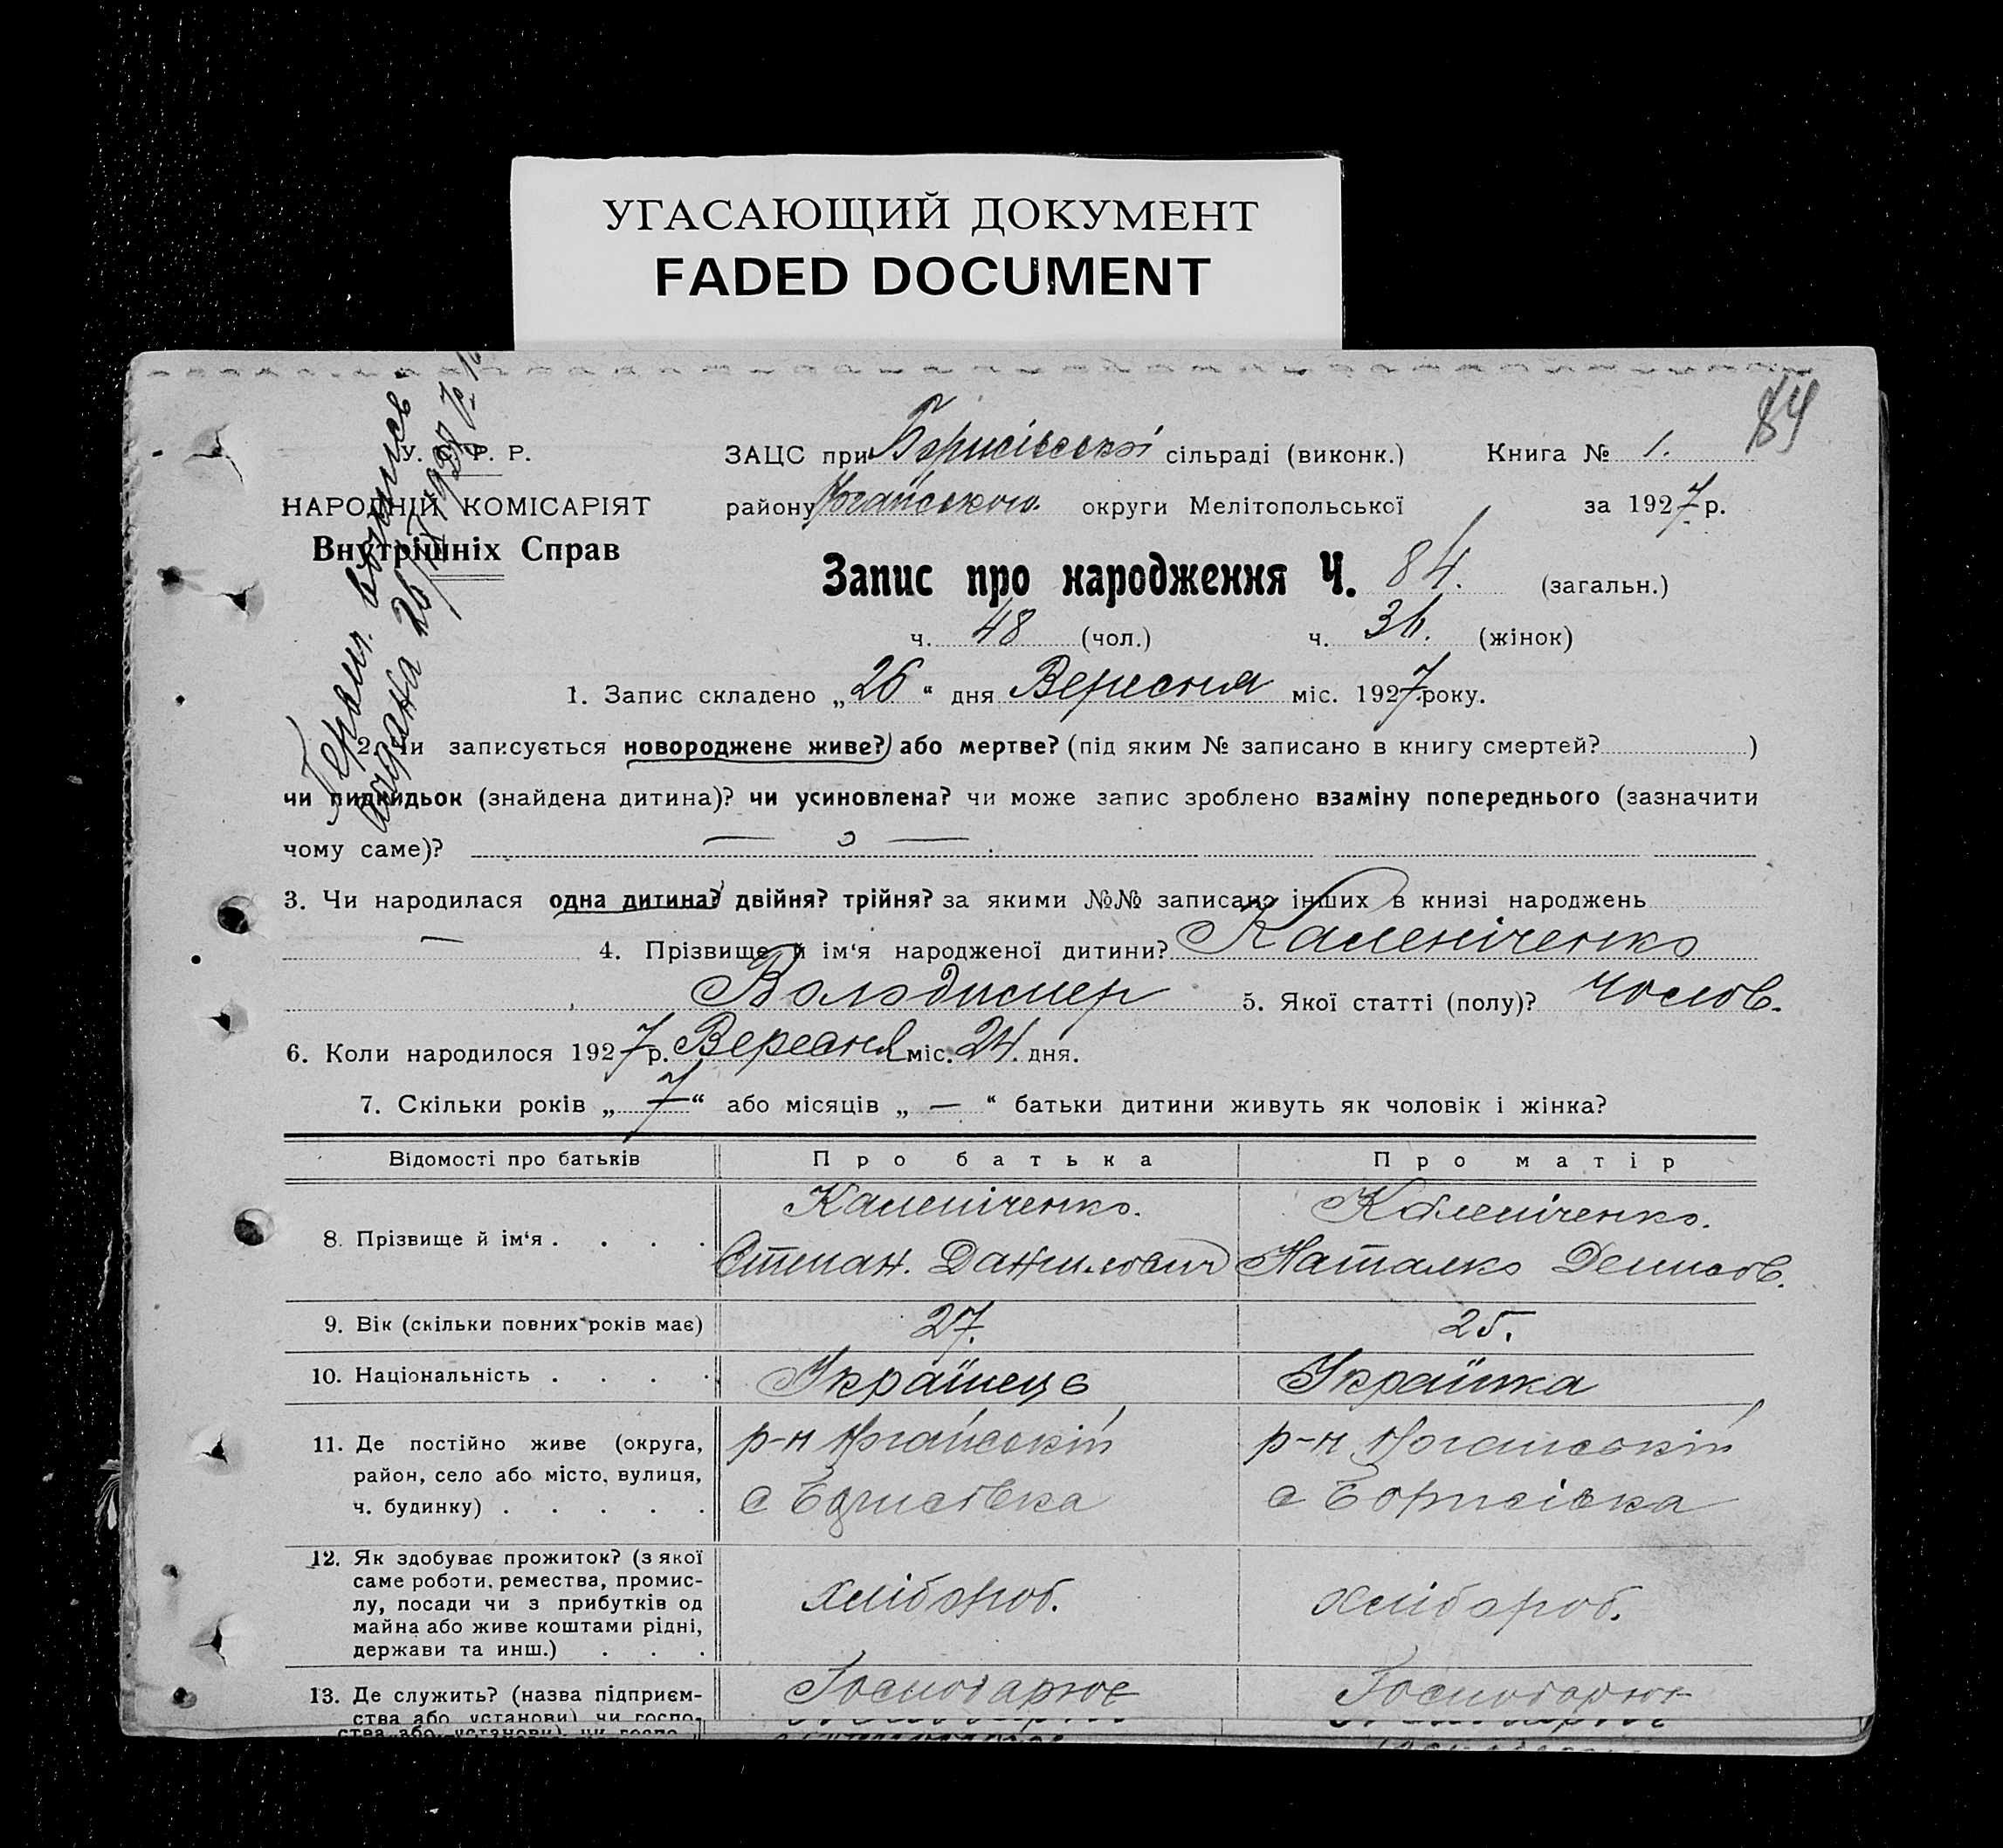 УГАСАЮЩИЙ ДОКУМЕНТ
FADED DOCUMENT
84
У. С. Р. Р.
НАРОДНІЙ КОМІСАРІЯТ
Внутрішніх Справ
ЗАЦС при Борисівській сільраді (виконк.) Книга № 1.
району Ногайського округи Мелітопольської за 1927 р.
Запис про народження Ч. 84. (загальн.)
ч. 48 (чол.) ч. 36. (жінок)
1. Запис складено „26“ дня Вересня міс. 1927 року.
2. Чи записується новороджене живе? або мертве? (під яким № записано в книгу смертей? )
чи пидкидьок (знайдена дитина)? чи усиновлена? чи може запис зроблено взаміну попереднього (зазначити
чому саме)?
3. Чи народилася одна дитина? двійня? трійня? за якими №№ записано інших в книзі народжень
— 4. Прізвище й ім‘я народженої дитини? Каленіченко
Володимер 5. Якої статті (полу)? чолов.
6. Коли народилося 1927 р. Вересня міс. 24. дня.
7. Скільки років „7“ або місяців „ — “ батьки дитини живуть як чоловік і жінка?
Відомості про батьків Про батька Про матір
8. Прізвище й ім‘я . . . . Каленіченко. Каленіченко.
Степан. Данилович Наталко Денисов.
9. Вік (скільки повних років має) 27. 25.
10. Національність . . . . Українець Українка
11. Де постійно живе (округа, р-н Ногайській р-н Ногайській
район, село або місто, вулиця, с Борисовка с Борисівка
ч. будинку) . . . . .
12. Як здобуває прожиток? (з якої
саме роботи, ремества, промис-
лу, посади чи з прибутків од хлібороб. хлібороб.
майна або живе коштами рідні,
держави та инш.) . . .
13. Де служить? (назва підприєм- Господарює Господарює
ства або установи) чи госпо-
ства або установи) чи госпо-